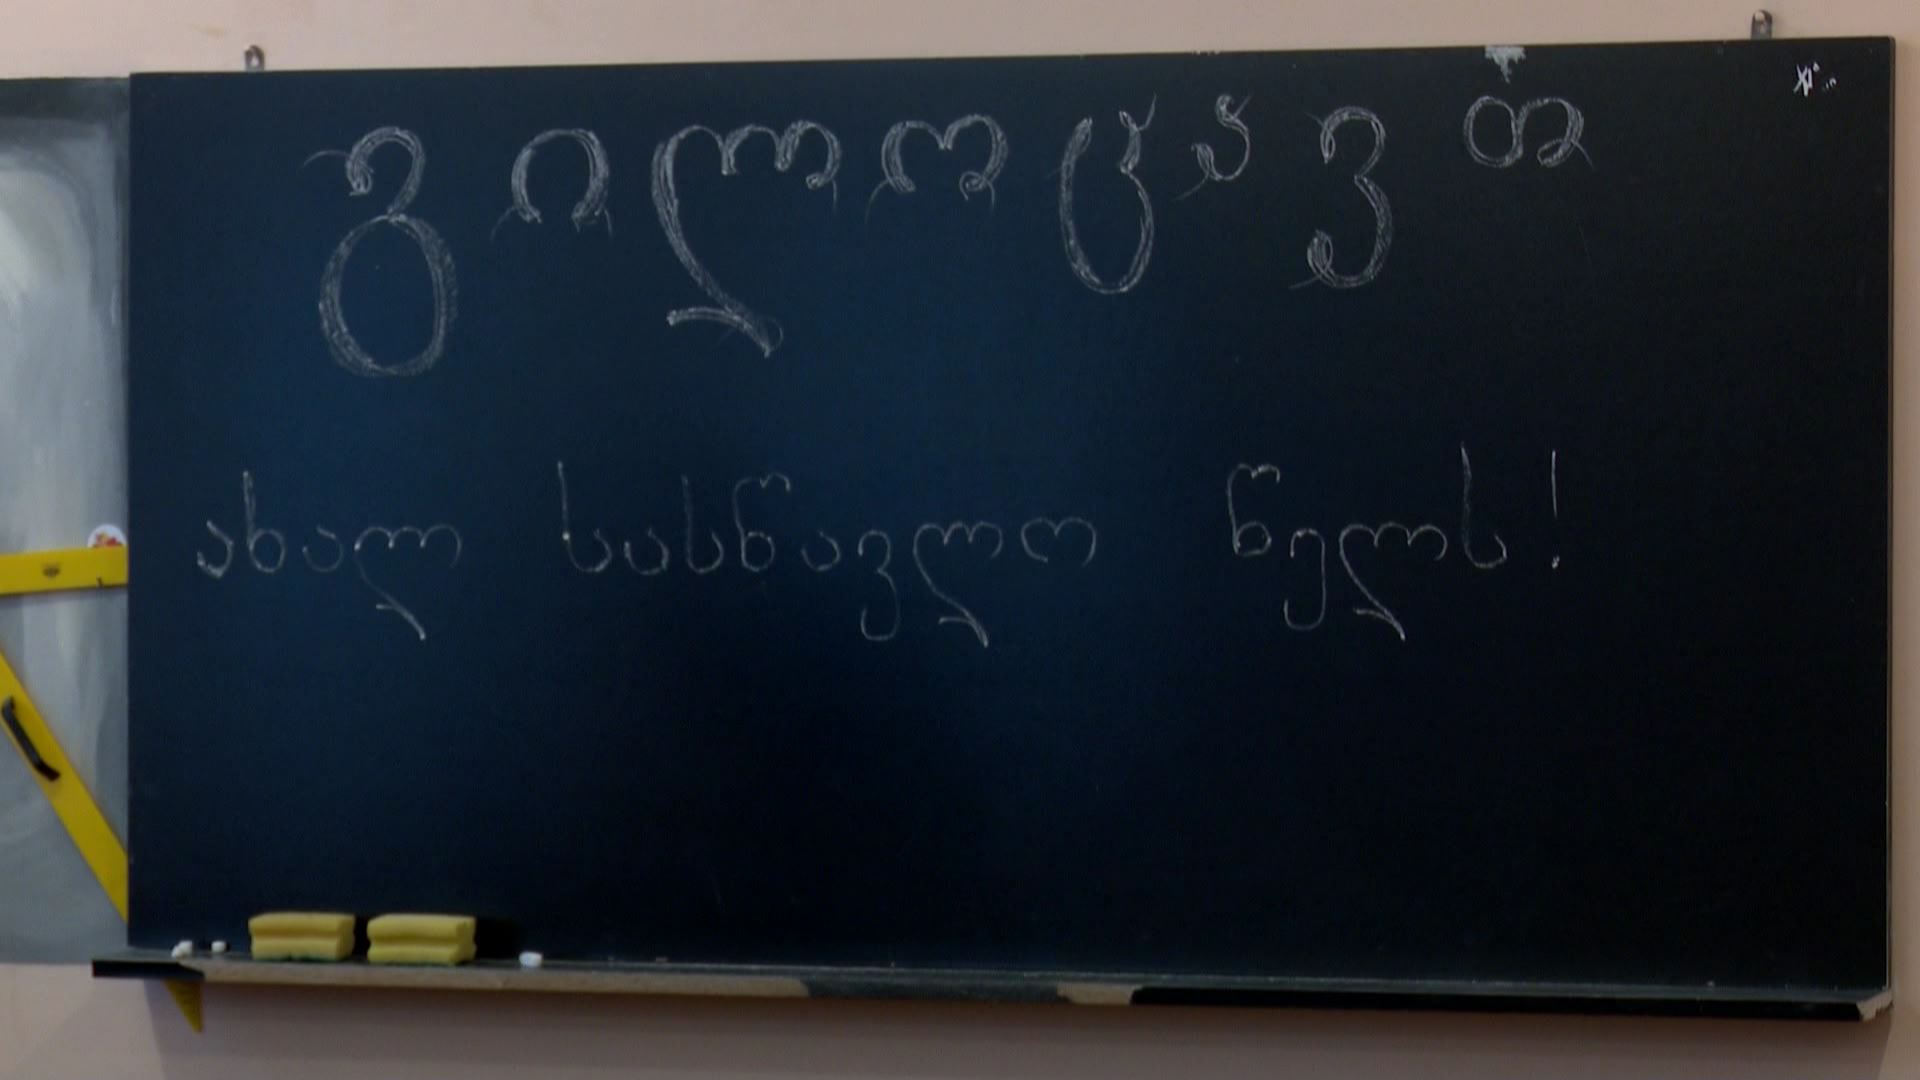 გილოცავთ
ახალ სასწავლო წელს!